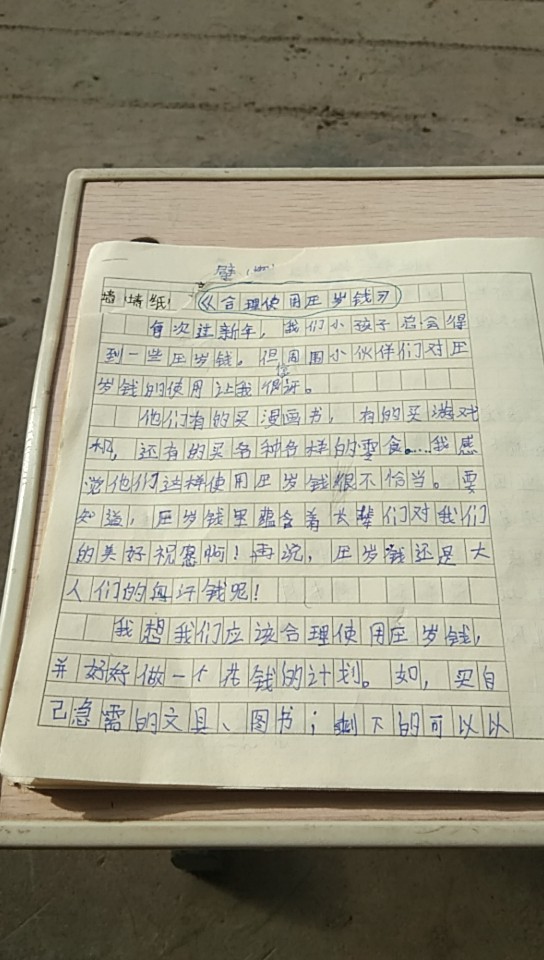 壁
墙 墙纸 《合理使用压岁钱》
每次过新年，我们小孩子总会得
到一些压岁钱。但周围小伙伴们对压
岁钱的使用让我很惊讶。
他们有的买漫画书，有的买游戏
机，还有的买各种各样的零食……我感
觉他们这样使用压岁钱很不恰当。要
知道，压岁钱里蕴含着长辈们对我们
的美好祝愿啊！再说，压岁钱还是大
人们的血汗钱呢！
我想我们应该合理使用压岁钱，
并好好做一个花钱的计划。如，买自
己急需的文具、图书；剩下的可以以